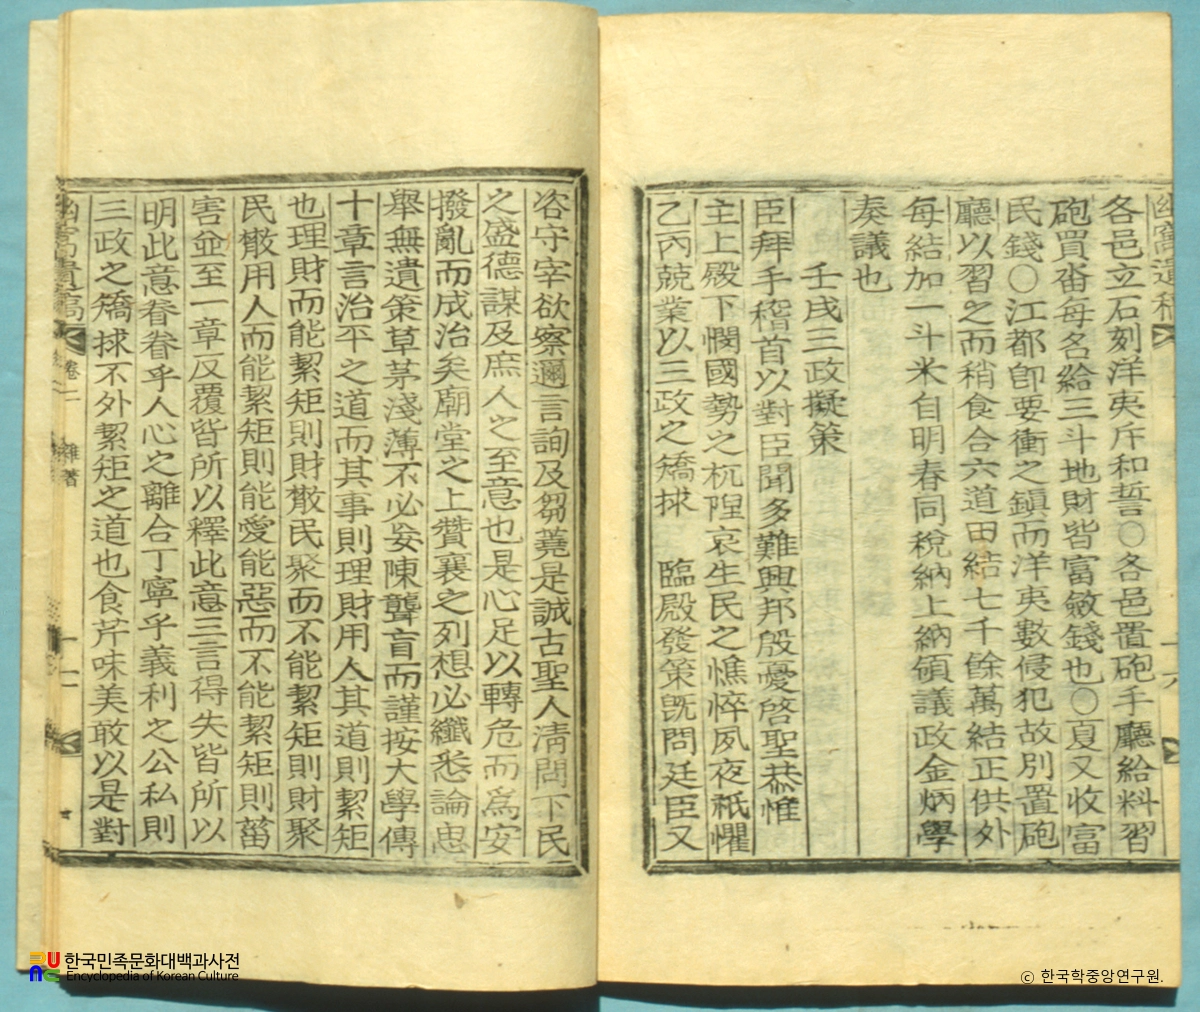 幽窩遺稿
各邑立石刻洋夷斥和誓〇各邑置砲手廳給料習
砲買畓每名給三斗地財皆富斂錢也〇夏又收富
民錢〇江都卽要衝之鎭而洋夷數侵犯故別置砲
廳以習之而稍食合六道田結七千餘萬結正供外
每結加一斗米自明春同稅納上納領議政金炳學
奏議也
壬戌三政擬策
臣拜手稽首以對臣聞多難興邦殷憂啓聖恭惟
主上殿下憫國勢之杌隉哀生民之憔悴夙夜祇懼
乙丙兢業以三政之矯捄 臨殿發策旣問廷臣又
咨守宰欲察邇言詢及芻蕘是誠古聖人淸問下民
之盛德謀及庶人之至意也是心足以轉危而爲安
撥亂而成治矣廟堂之上贊襄之列想必纖悉論忠
擧無遺策草茅淺薄不必妄陳聾盲而謹按大學傳
十章言治平之道而其事則理財用人其道則絜矩
也理財而能絜矩則財散民聚而不能絜矩則財聚
民散用人而能絜矩則能愛能惡而不能絜矩則菑
害並至一章反覆皆所以釋此意三言得失皆所以
明此意眷眷乎人心之離合丁寧乎義利之公私則
三政之矯捄不外絜矩之道也食芹味美敢以是對
幽窩遺稿 卷二 雜著
한국민족문화대백과사전
Encyclopedia of Korean Culture
ⓒ 한국학중앙연구원.